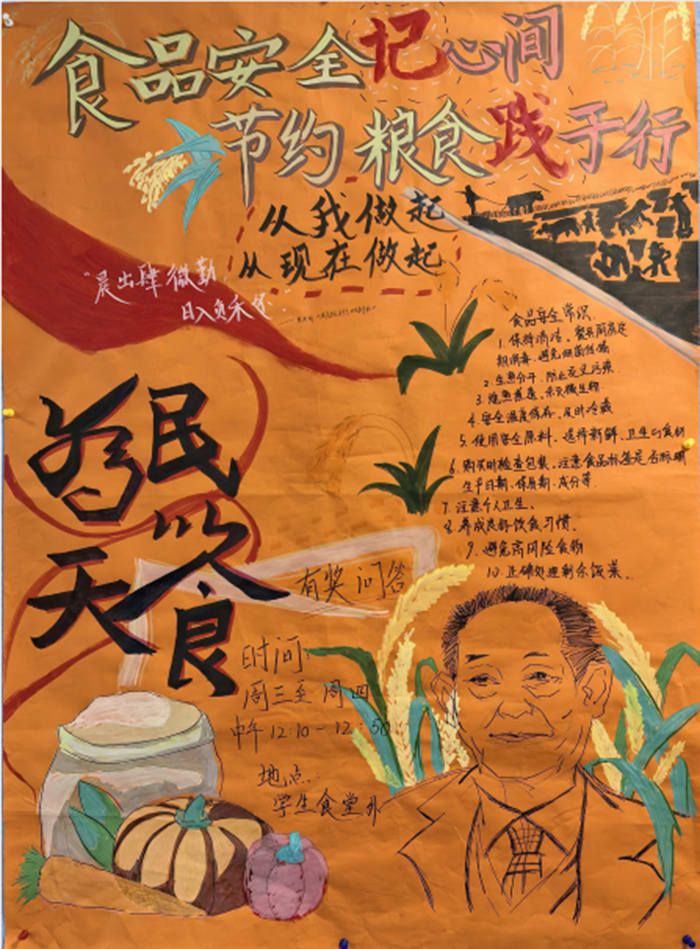 食品安全记心间
节约粮食践于行
从我做起
从现在做起
"晨出肆微勤
日入负禾还"
民以食
为天
食品安全常识
1. 保持清洁、餐具厨房定
期消毒、避免细菌传播
2. 生熟分开、防止交叉污染
3. 烧熟煮透、杀灭微生物
4. 安全温度保存、及时冷藏
5. 使用安全原料、选择新鲜、卫生的食材
6. 购买时检查包装、注意食品标签是否标明
生产日期、保质期、成分等
7. 注意个人卫生。
8. 养成良好饮食习惯。
9. 避免高风险食物
10. 正确处理剩余饭菜。
有奖问答
时间:
周三至周四
中午12:10-12:50
地点:
学生食堂外